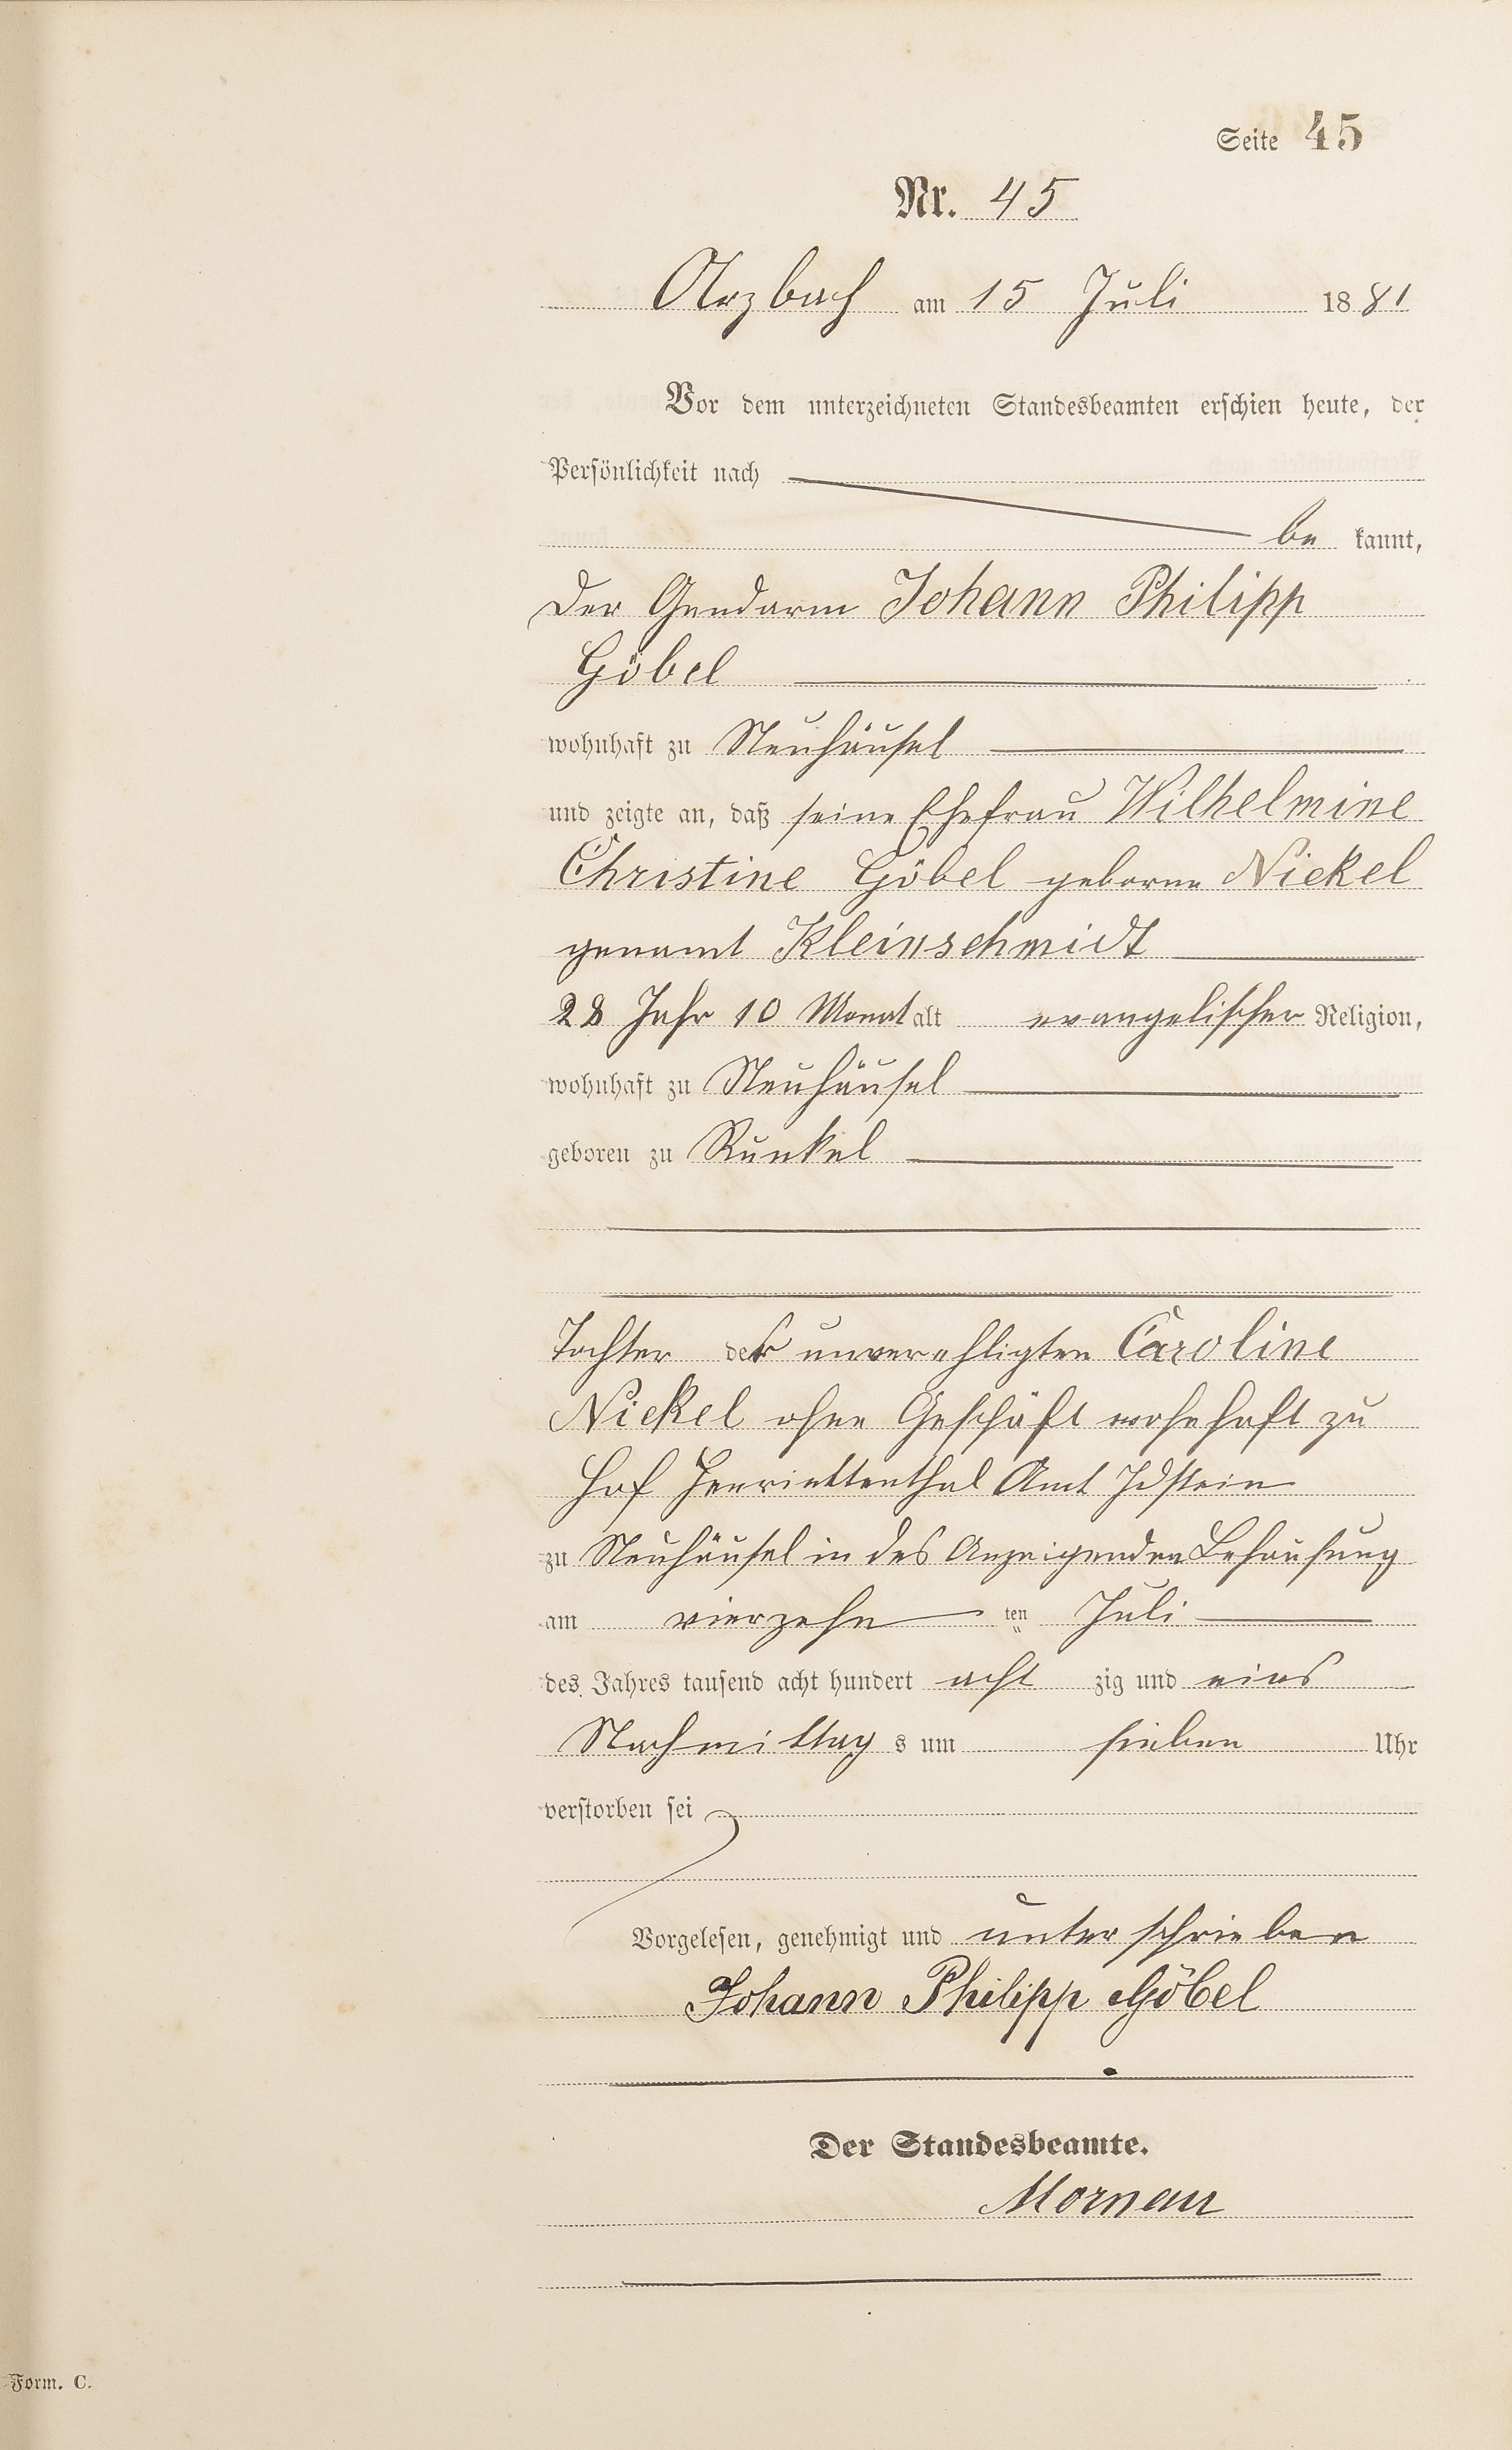 Seite 45
Nr. 45
Arzbach am 15 Juli 1881
Vor dem unterzeichneten Standesbeamten erschien heute, der
Persönlichkeit nach
be kannt,
der Gendarm Johann Philipp
Göbel
wohnhaft zu Neuhäusel
und zeigte an, daß seine Ehefrau Wilhelmine
Christine Göbel geborne Nickel
genannt Kleinschmidt
28 Jahr 10 Monat alt evangelischer Religion,
wohnhaft zu Neuhäusel
geboren zu Runkel
Tochter der unverehligten Caroline
Nickel ohne Geschäft wohnhaft zu
Hof Henriettenthal Amt Idstein
zu Neuhäusel in des Anzeigenden Behausung
am vierzehn ten Juli
des Jahres tausend acht hundert acht zig und eins
Nachmittag s um sieben Uhr
verstorben sei
Vorgelesen, genehmigt und unterschrieben
Johann Philipp Göbel
Der Standesbeamte.
Mornau
Form. C.